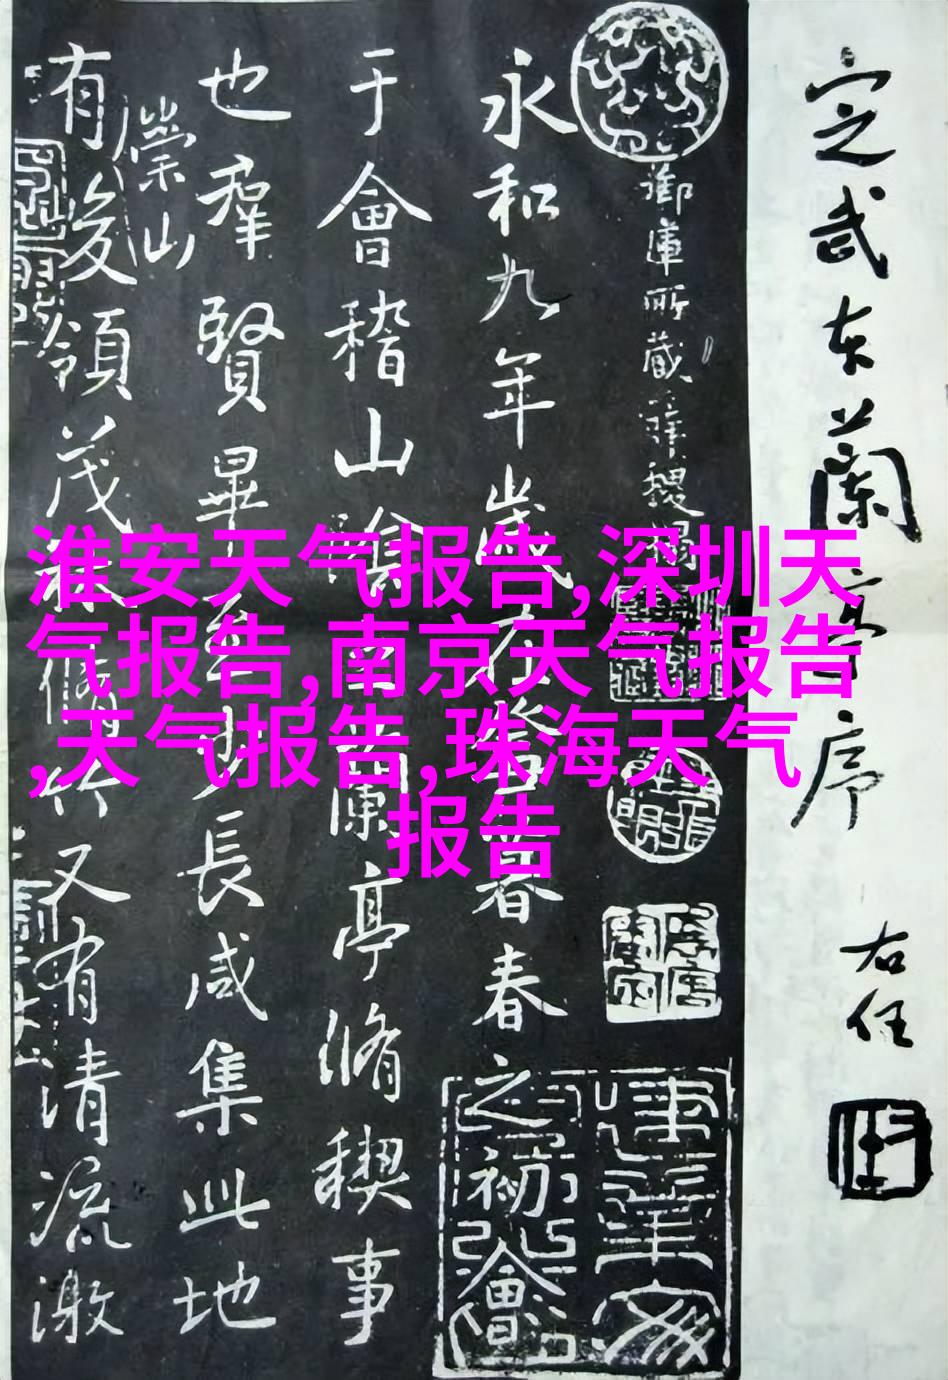 定武本蘭亭序
右任
御庫所藏薛稷
永和九年歲在癸丑暮春之初會
于會稽山陰之蘭亭脩稧事
也羣賢畢至少長咸集此地
崇山
有峻領茂林脩竹又有清流激
淮安天气报告,深圳天
气报告,南京天气报告
,天气报告,珠海天气
报告